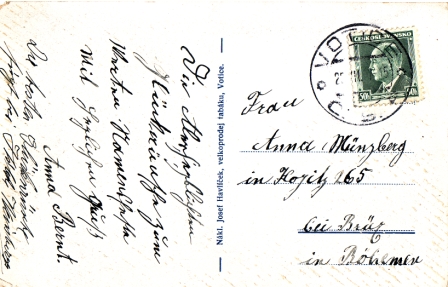 Die allerherzlichsten
Glückwünsche zum
werten Namensfeste
Mit herzlichem Gruß
Anna Bernt.
Die besten Glückwünsche
Nákl. Josef Havlíček, velkoprodej tabáku, Votice.
ČESKOSLOVENSKO
50h
VOTICE
Frau
Anna Münzberg
in Kopitz 165
bei Brüx
in Böhmen